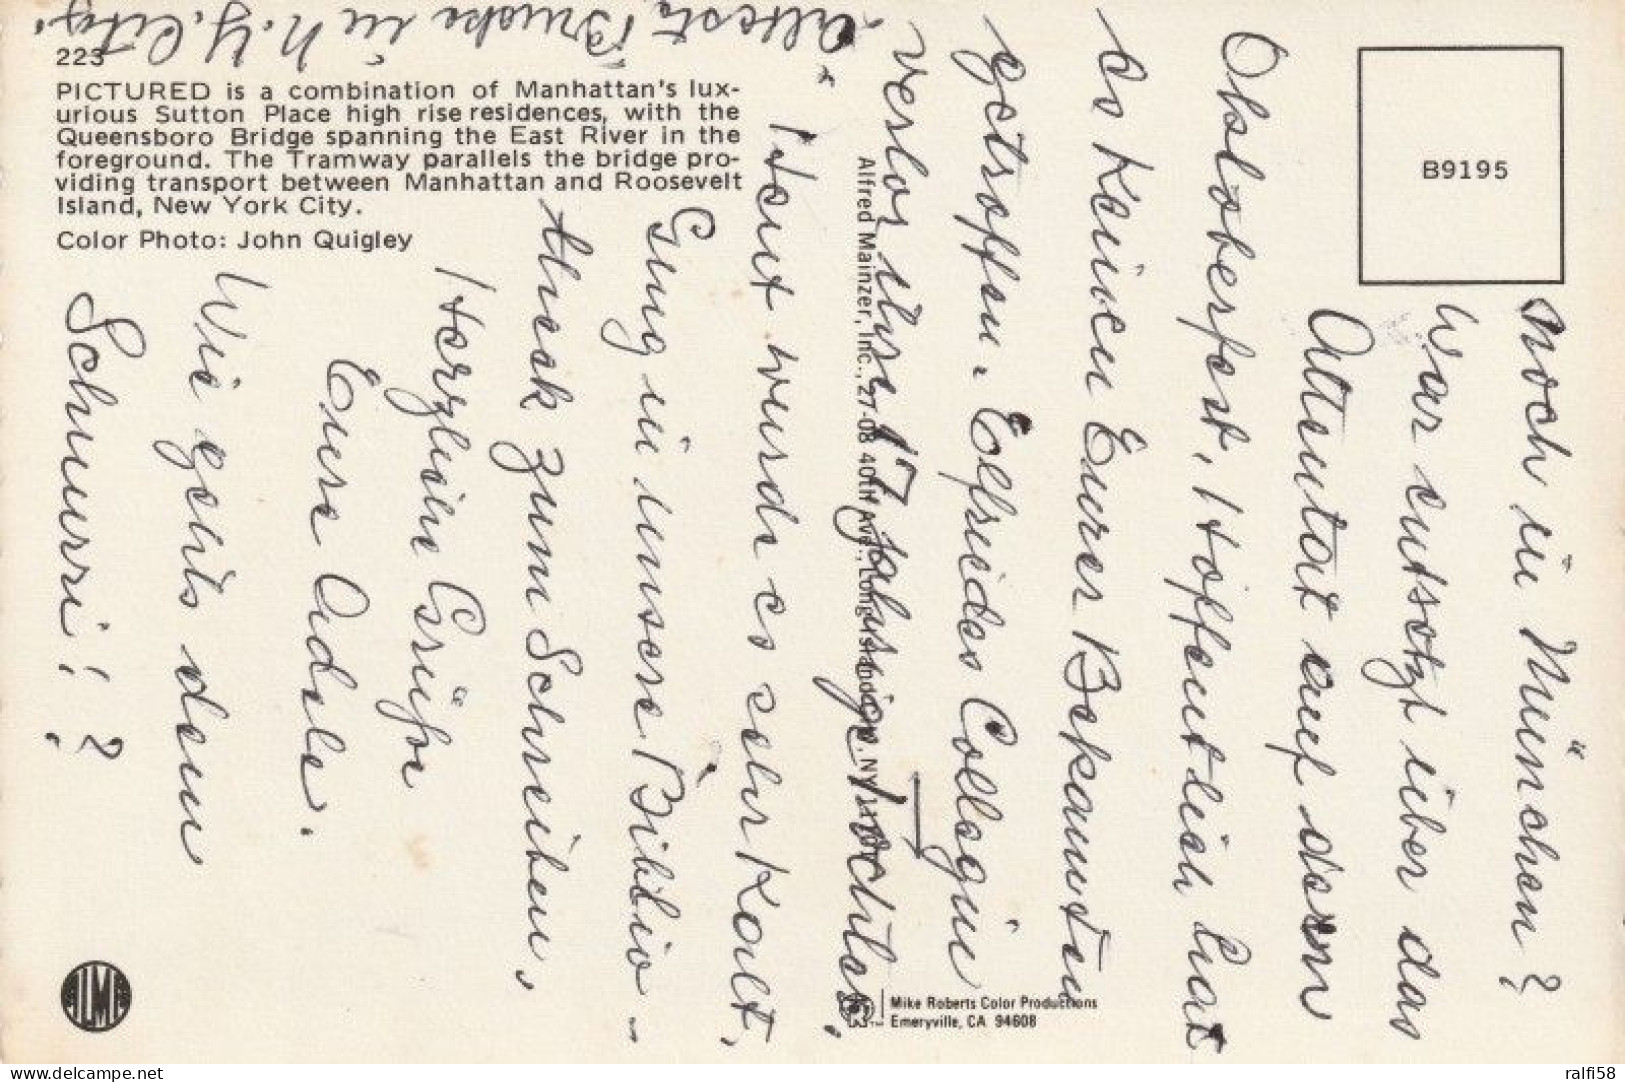 223
PICTURED is a combination of Manhattan's lux-
urious Sutton Place high rise residences, with the
Queensboro Bridge spanning the East River in the
foreground. The Tramway parallels the bridge pro-
viding transport between Manhattan and Roosevelt
Island, New York City.
Color Photo: John Quigley
B9195
Alfred Mainzer, Inc., 27-08 40th Ave., Long Island City, NY 11101
Mike Roberts Color Productions
Emeryville, CA 94608
noch in München?
War entsetzt über das
Attentat auf dem
Oktoberfest, Hoffentlich hat
es keinen Eurer Bekannten
getroffen. Elfriedes Collegin
verlor ihre 17 jährige Tochter.
Heut wurde es sehr kalt,
Ging in unsere Biblio-
thek zum Schreiben,
Herzliche Grüße
Eure Adele.
Wie gehts dem
Schnurri! ?
älteste Brücke in N.Y. City.
ralfi58